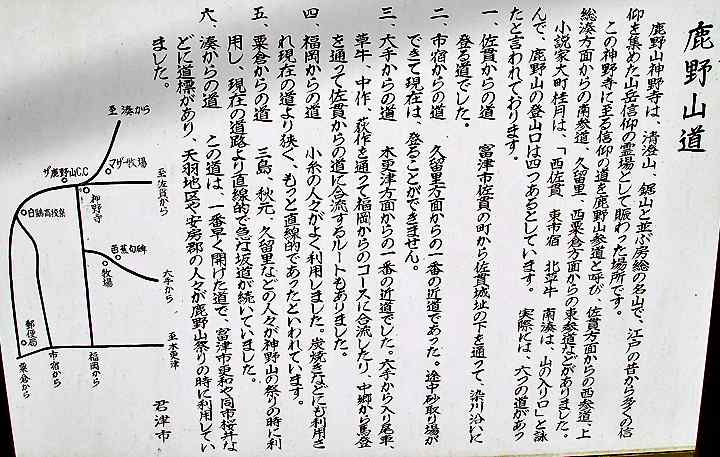 鹿野山道
鹿野山神野寺は、清澄山、鋸山と並ぶ房総の名山で、江戸の昔から多くの信
仰を集めた山岳信仰の霊場として賑わった場所です。
この神野寺に至る信仰の道を鹿野山参道と呼び、佐貫方面からの西参道、上
総湊方面からの南参道、久留里、西粟倉方面からの東参道などがありました。
小説家大町桂月は、「西佐貫 東市宿 北草牛 南湊は、山の入り口」と詠
んで、鹿野山の登山口は四つあるとしています。 実際には、六つの道があっ
たと言われております。
一、佐貫からの道 富津市佐貫の町から佐貫城址の下を通って、染川沿いに
登る道でした。
二、市宿からの道 久留里方面からの一番の近道であった。途中砂取り場が
できて現在は、登ることができません。
三、大手からの道 木更津方面からの一番の近道でした。大手から入り尾車、
草牛、中作、荻作を通って福岡からのコースに合流したり、中郷から馬登
を通って佐貫からの道に合流するルートもありました。
四、福岡からの道 小糸の人々がよく利用しました。炭焼きなどにも利用さ
れ現在の道より狭く、もっと直線的であったといわれています。
五、粟倉からの道 三島、秋元、久留里などの人々が神野山の祭りの時に利
用し、現在の道路より直線的で急な坂道が続いていました。
六、湊からの道 この道は、一番早く開けた道で、富津市更和や同市桜井な
どに道標があり、天羽地区や安房郡の人々が鹿野山祭りの時に利用してい
ました。
君津市
至湊から
マザー牧場
ザ鹿野山C.C
至佐貫から
神野寺
白鶴高校祭
芭蕉句碑
牧場
大手から
郵便局
至木更津
粟倉から
市宿から
福岡から